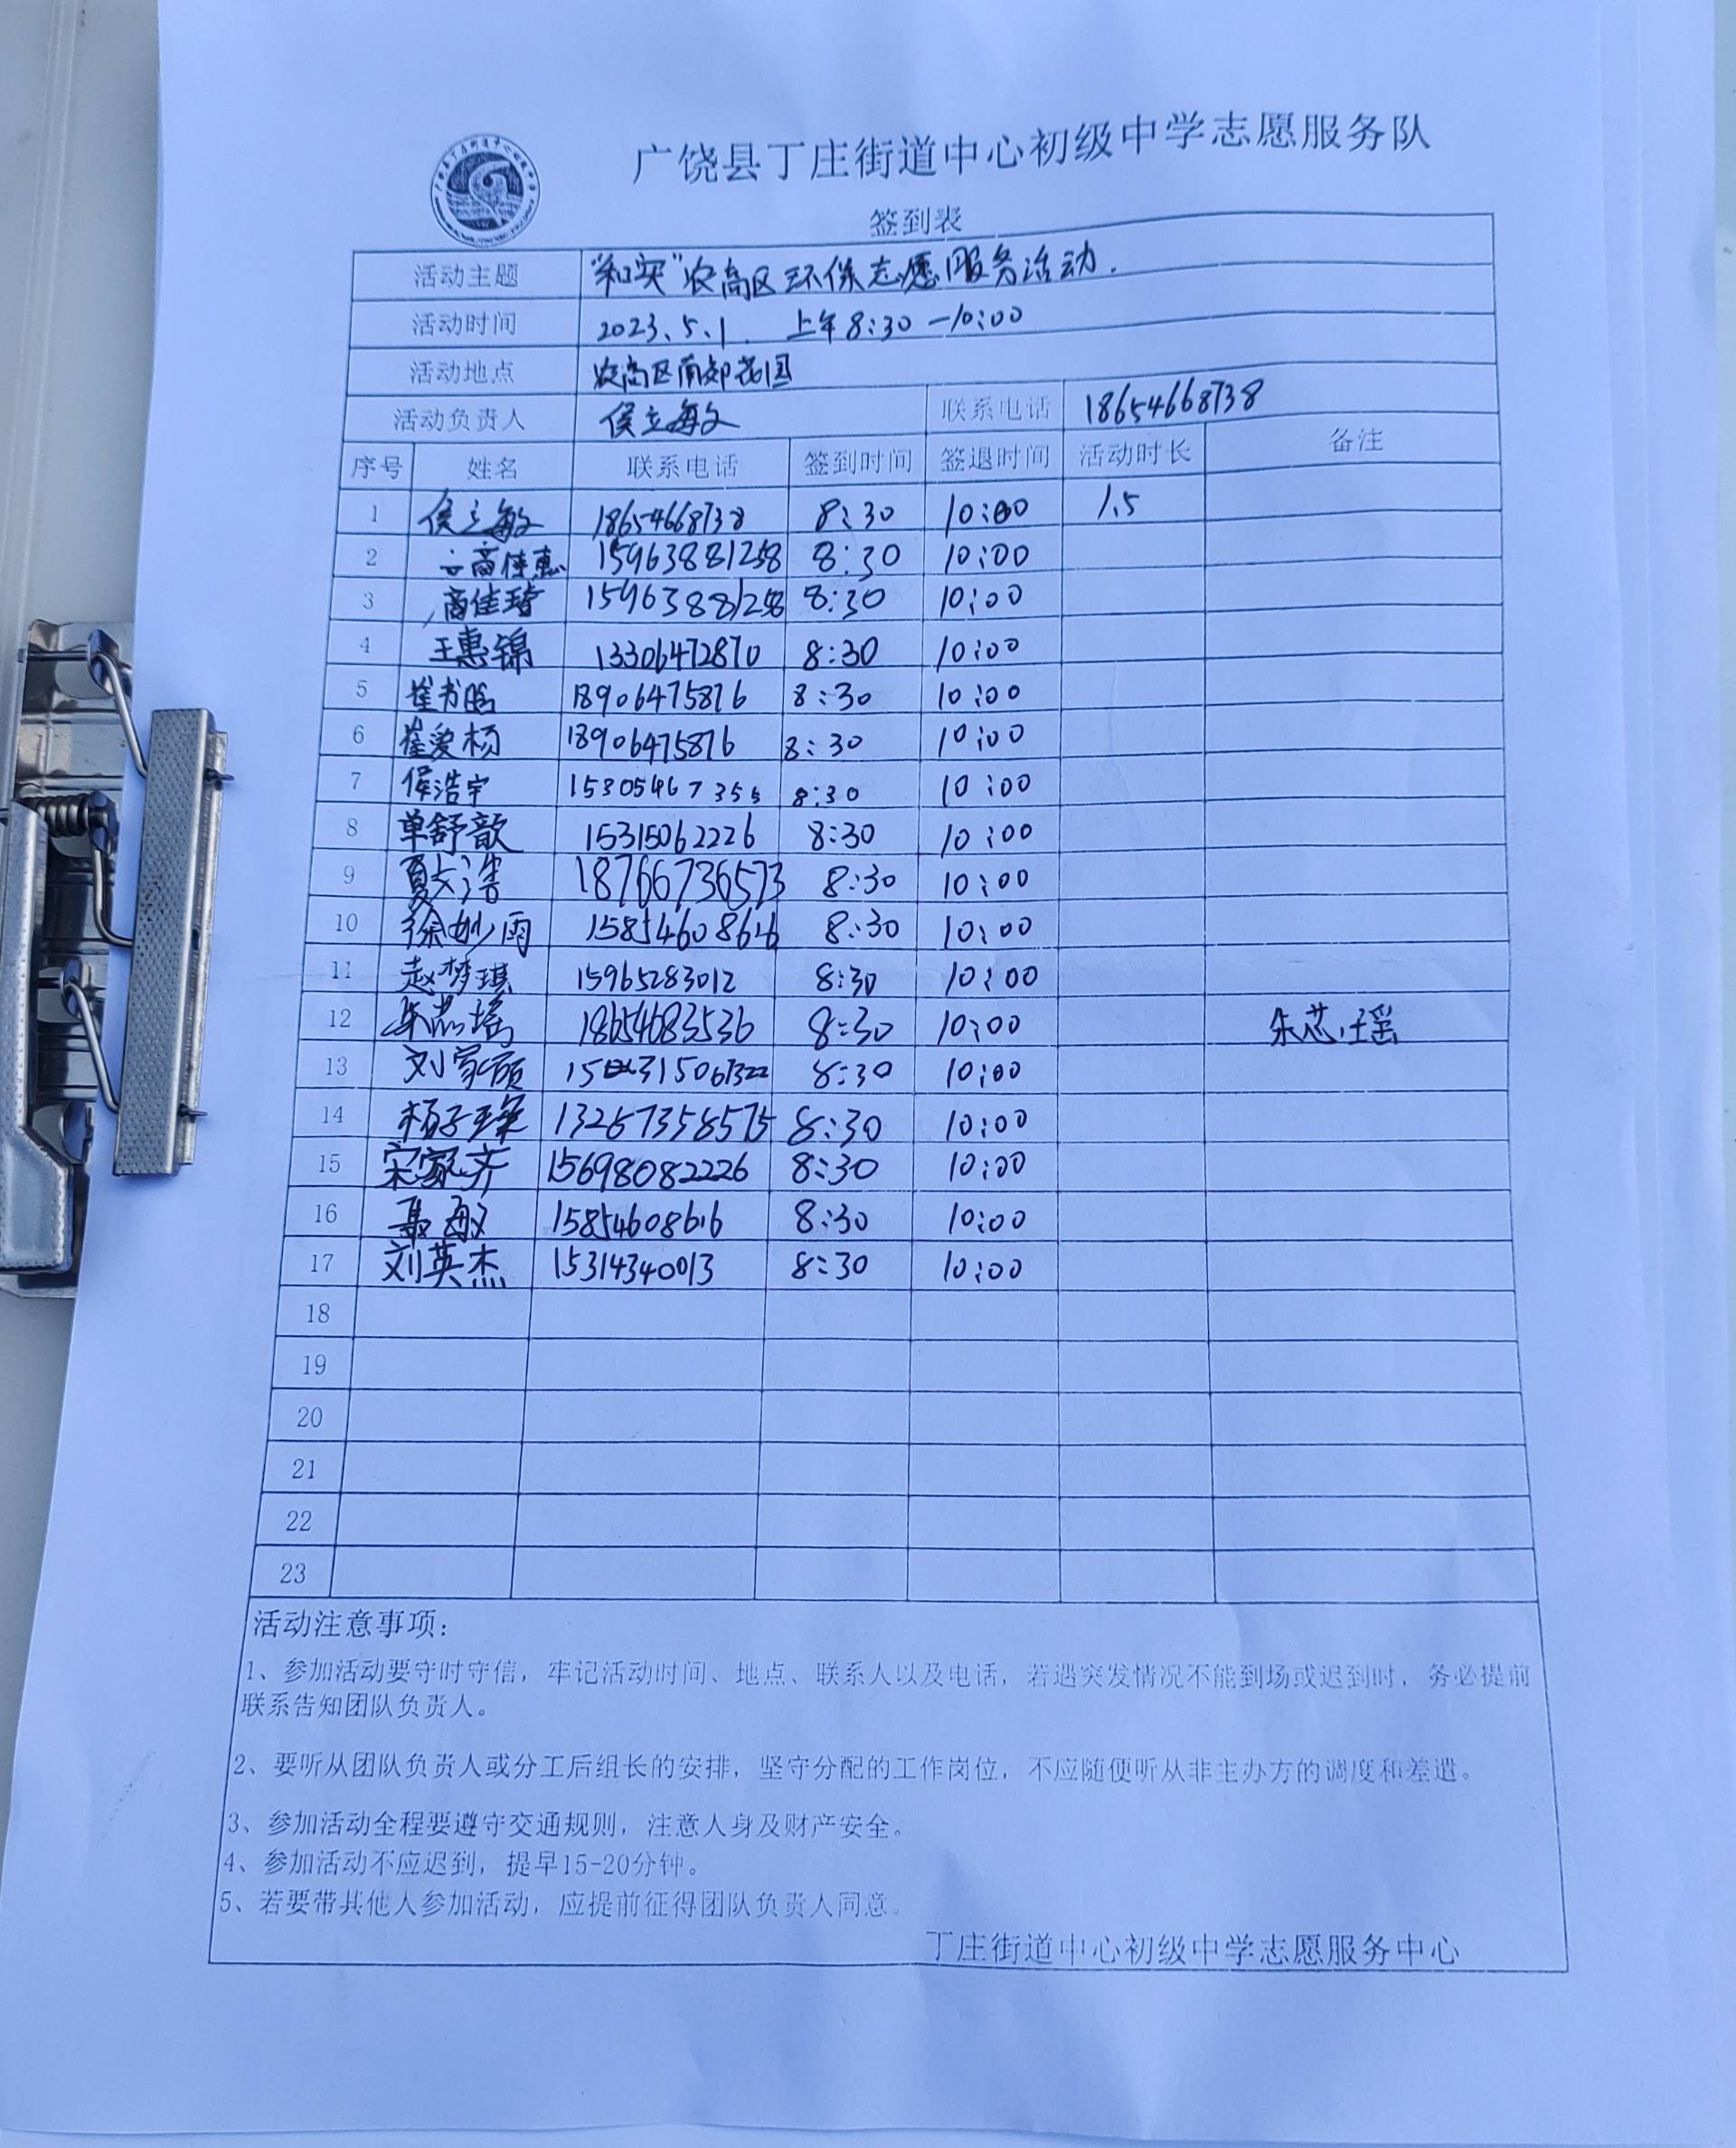 广饶县丁庄街道中心初级中学志愿服务队
签到表
活动主题 "和实"农高区环保志愿服务活动.
活动时间 2023.5.1. 上午8:30-10:00
活动地点 农高区南郊花园
活动负责人 侯立敏 联系电话 18654668738
序号 姓名 联系电话 签到时间 签退时间 活动时长 备注
1 侯立敏 18654668738 8:30 10:00 1.5
2 高佳惠 15963881258 8:30 10:00
3 高佳璿 15963881258 8:30 10:00
4 王惠锦 13306472870 8:30 10:00
5 崔书 18906475876 8:30 10:00
6 崔爱杨 18906475876 8:30 10:00
7 侯浩宇 15305467355 8:30 10:00
8 单舒歆 15315062226 8:30 10:00
9 夏 18766736573 8:30 10:00
10 徐妙雨 15854608616 8:30 10:00
11 赵梦琪 15965283012 8:30 10:00
12 朱芯瑶 18654683536 8:30 10:00 朱芯瑶
13 刘家硕 8:30 10:00
14 杨子 13267358575 8:30 10:00
15 宋家齐 15698082226 8:30 10:00
16 聂敏 15854608616 8:30 10:00
17 刘英杰 15314340013 8:30 10:00
18
19
20
21
22
23
活动注意事项:
1、参加活动要守时守信，牢记活动时间、地点、联系人以及电话，若遇突发情况不能到场或迟到时，务必提前
联系告知团队负责人。
2、要听从团队负责人或分工后组长的安排，坚守分配的工作岗位，不应随便听从非主办方的调度和差遣。
3、参加活动全程要遵守交通规则，注意人身及财产安全。
4、参加活动不应迟到，提早15-20分钟。
5、若要带其他人参加活动，应提前征得团队负责人同意。
丁庄街道中心初级中学志愿服务中心